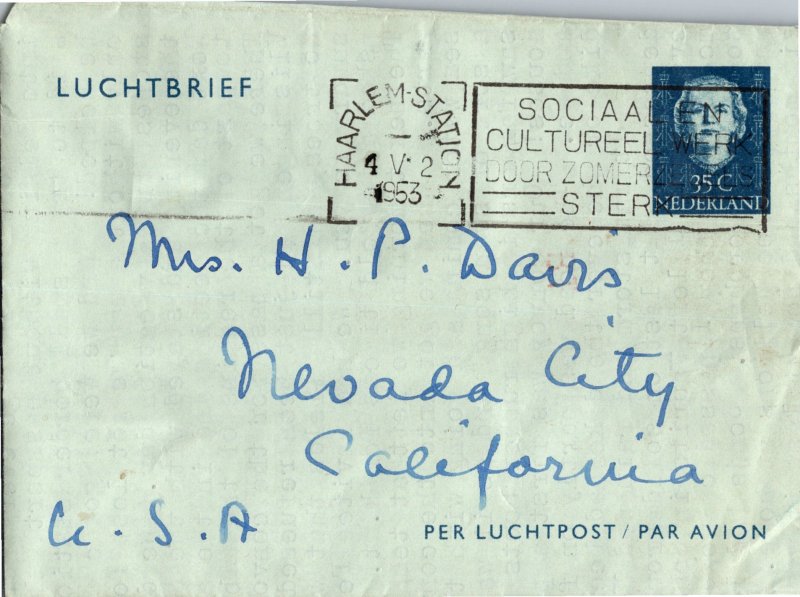 LUCHTBRIEF
HAARLEM-STATION
4 V 2
1953
SOCIAAL EN
CULTUREEL WERK
DOOR
STERK
35 C
NEDERLAND
Mrs. H. P. Davis
Nevada City
California
U. S. A
PER LUCHTPOST / PAR AVION